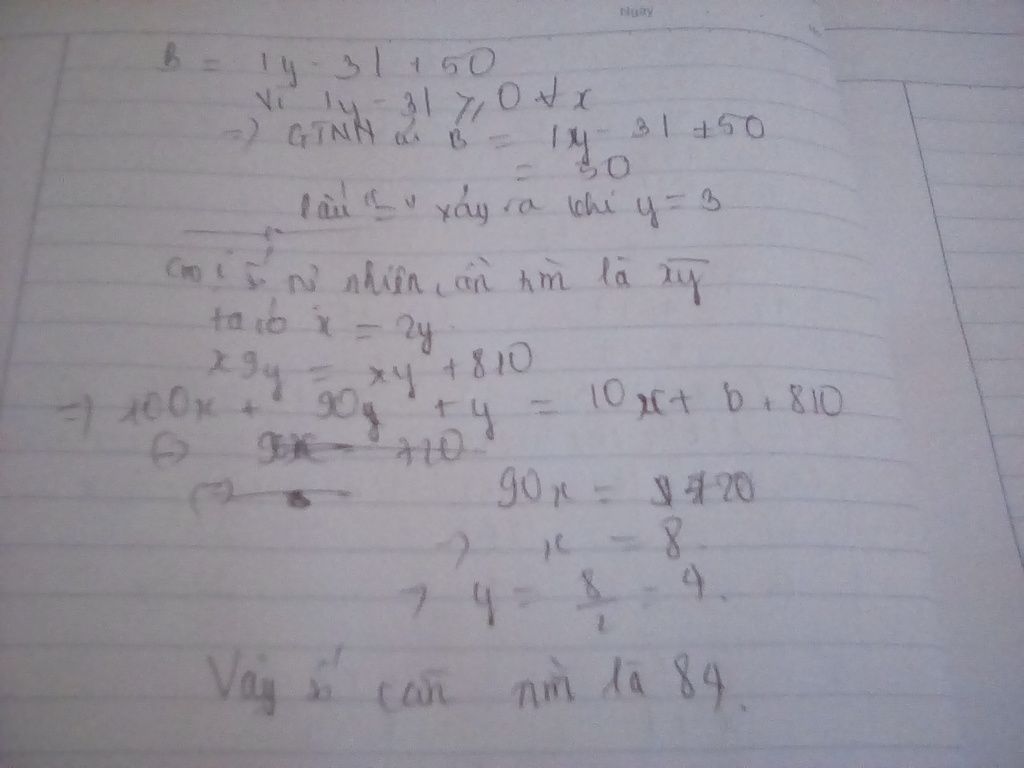 Ngày
B = |y - 3| + 50
Vì |y - 3| ≥ 0 ∀ x
=> GTNN của B = |y - 3| + 50
= 50
Dấu "=" xảy ra khi y = 3
Gọi số tự nhiên cần tìm là xy
ta có x = 2y
x9y = xy + 810
=> 100x + 90y + y = 10x + b + 810
90x = 720
=> x = 8
=> y = 8/2 = 4.
Vậy số cần tìm là 84.